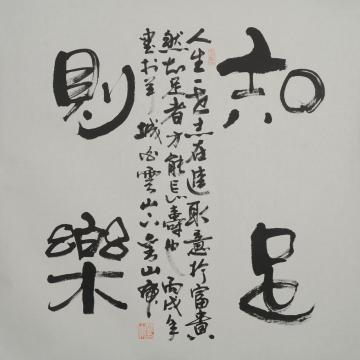 知足
則樂
人生一世志在進取意於富貴
然知足者方能長壽也丙戌年
書於羊城白雲山下黃山康